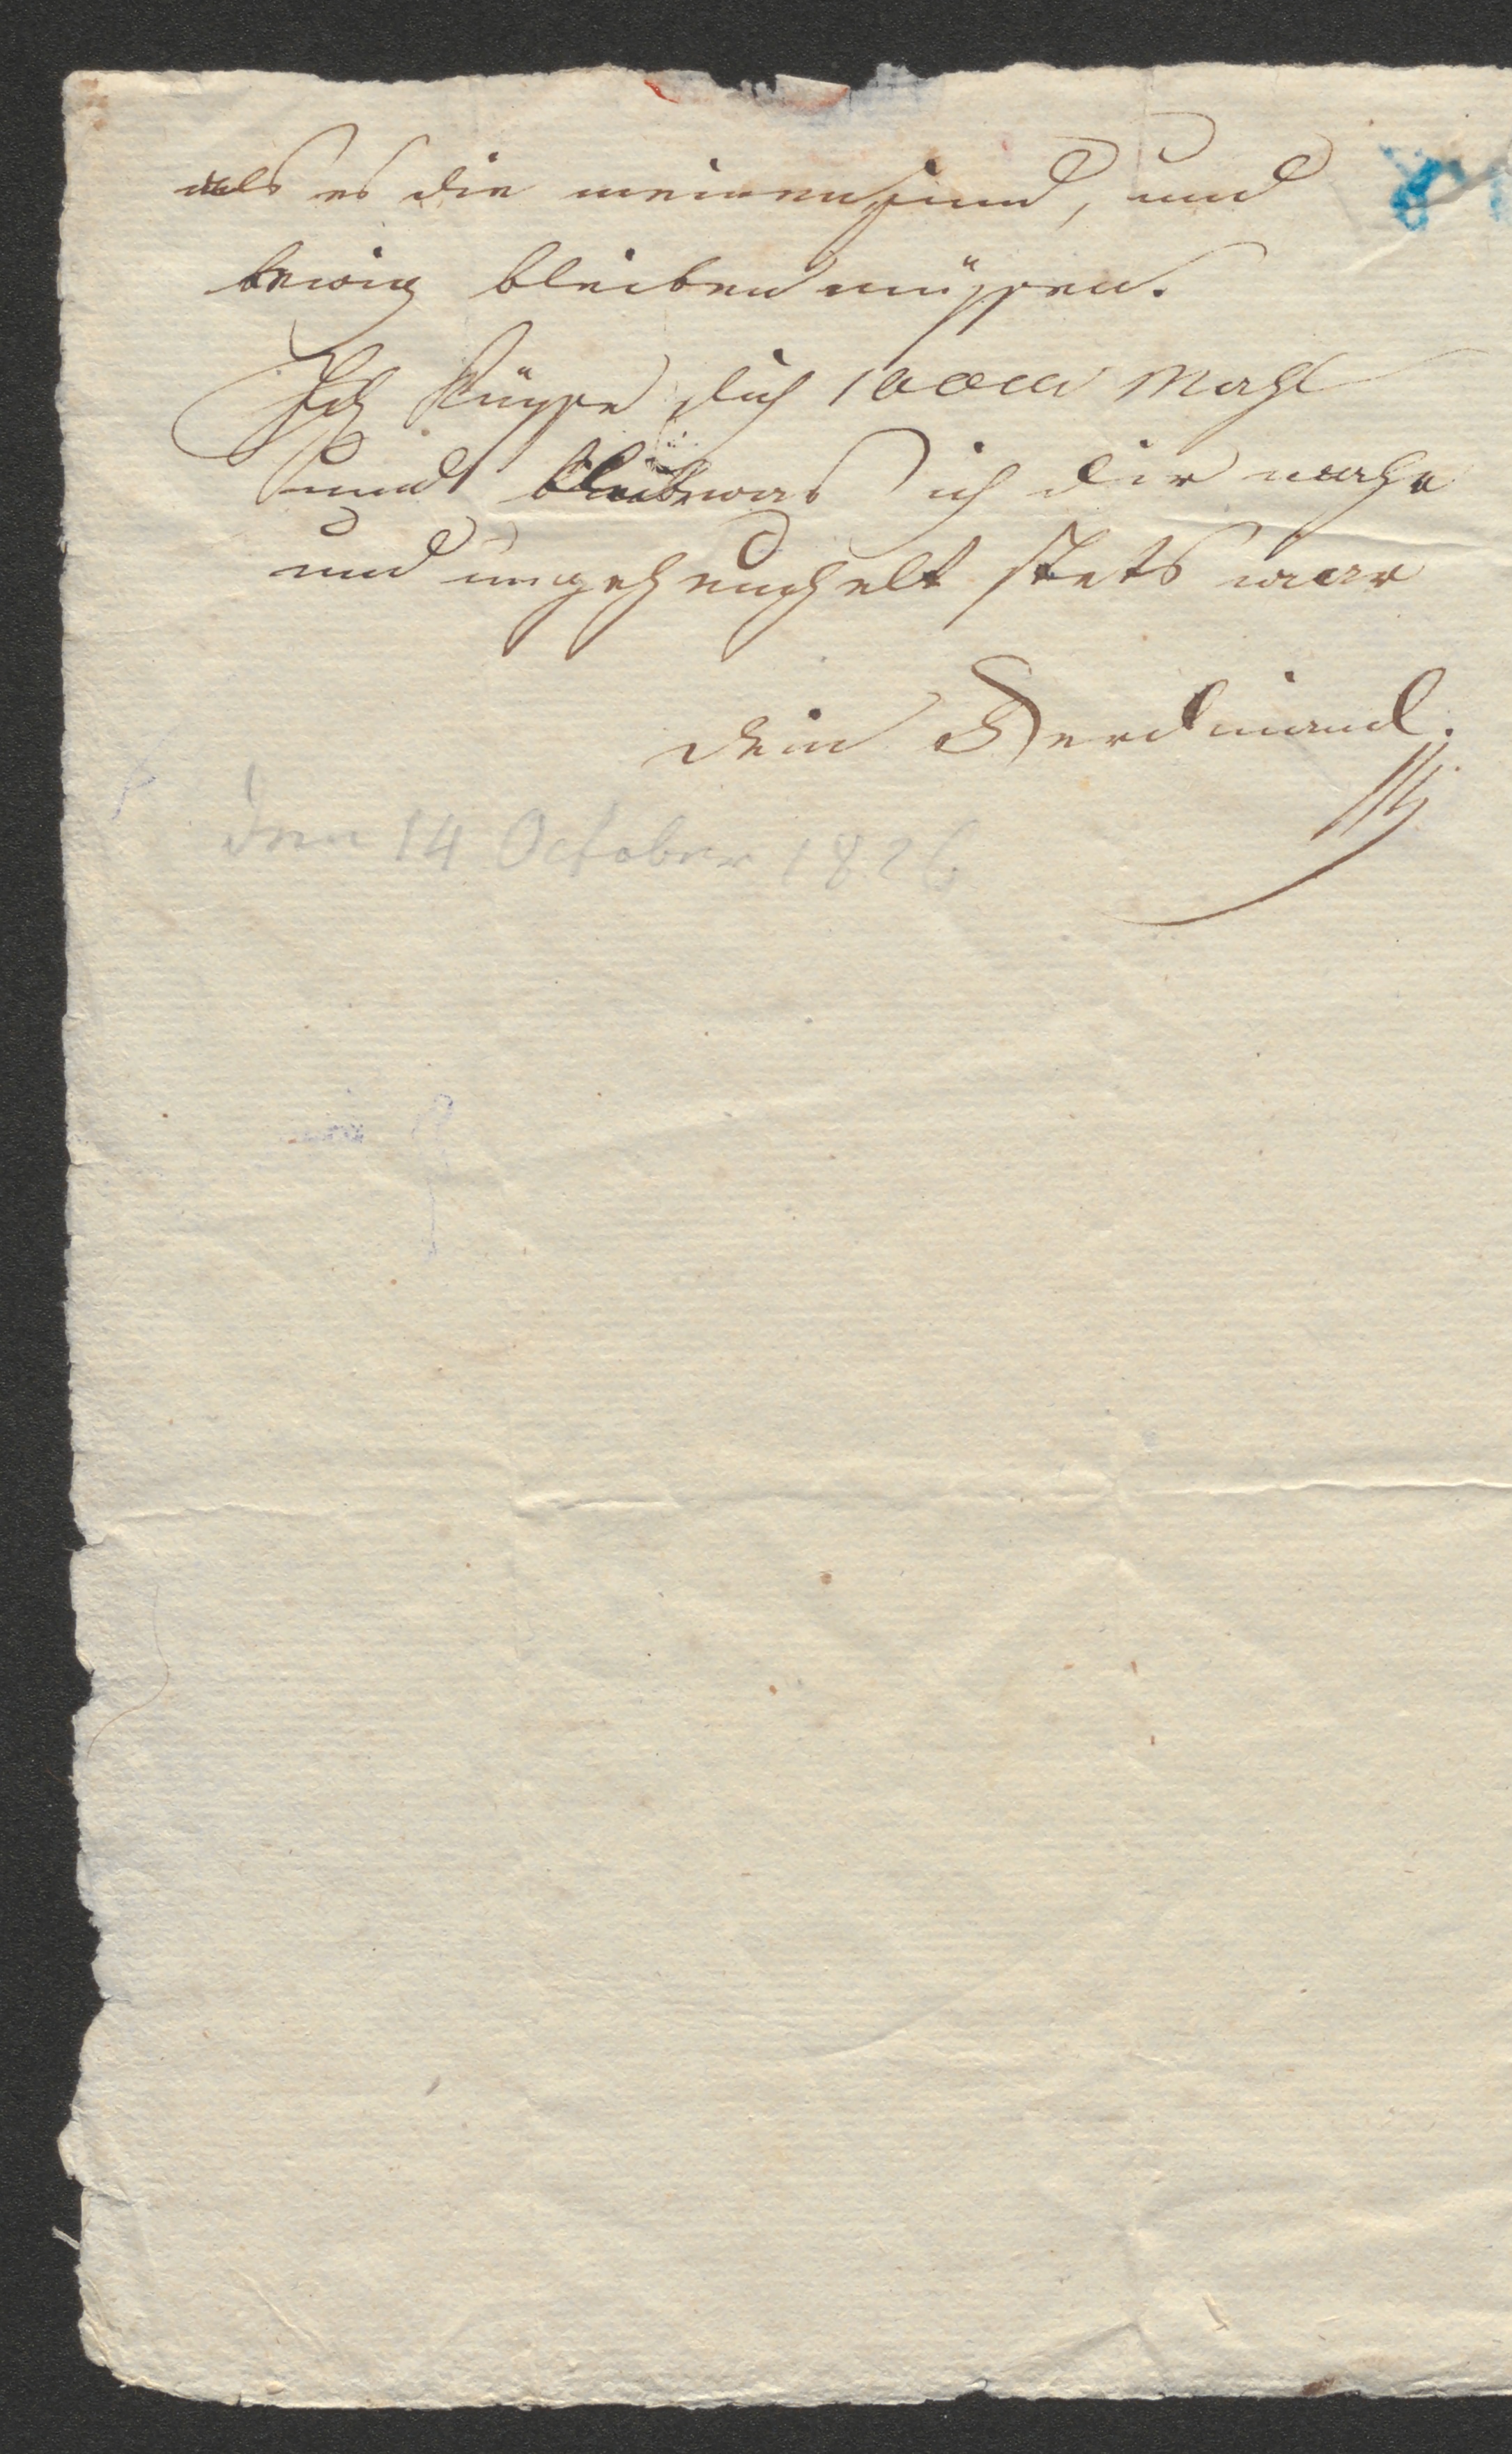 als es die meinen sind, und
ewig bleiben müssen.
Ich küsse dich 1000 Mahl
und bleib was ich dir nahe
und ungeheuchelt stets war
dein Ferdinand.
den 14 October 1826